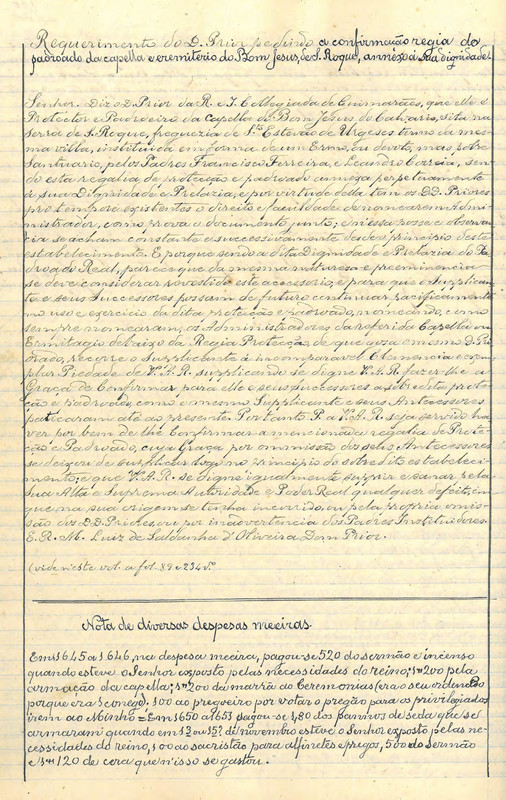 Requerimento do D. Prior pedindo a confirmação regia do
padroado da capella e eremiterio do Bom Jesus, de S. Roque, annexo á sua dignidade.
Senhor. Diz o D. Prior da R. e I. Collegiada de Guimarães, que elle é
Protector e Padroeiro da Capella do Bom Jesus do Calvario, sita na
Serra de S. Roque, freguezia de Sto Estevão de Urgeses termo da mes-
ma villa, instituida em forma de um Ermo, ou devoto, mas pobre
Santuario, pelos Padres Francisco Ferreira, e Leandro Correia, sen-
do esta regalia de protecção e padroado annexa perpetuamente
á sua Dignidade e Prelazia, e por virtude della tem os DD. Priores
pro tempore existentes o direito e faculdade de nomearem Admi-
nistrador, como prova o documento junto, e n'essa posse e observan-
cia se acham constante e successivamente desde o principio deste
estabelecimento. E porque sendo a dita Dignidade e Prelazia do Pa-
droado Real, parece que da mesma natureza e preeminencia
se deve considerar revestido este accessorio, e para que o Supplican-
te e seus Successores possam de futuro continuar pacificamente
no uso e exercicio da dita protecção e padroado, nomeando, como
sempre nomearam, os Administradores da referida Capella ou
Ermitagio debaixo da Regia Protecção, de que goza o mesmo D. Pri-
orado, recorre o Supplicante á incomparavel Clemencia e exem-
plar Piedade de V. A. R. supplicando se digne V. A. R. fazer-lhe a
Graça de Confirmar para elle e seus Successores a sobredita prote-
cção e Padroado, como o mesmo Supplicante e seus Antecessores
praticaram até ao presente. Portanto P. a V. A. R. seja servido ha-
ver por bem de lhe Confirmar a mencionada regalia de Prote-
cção e Padroado, cuja Graça por ommissão dos seus Antecessores
se deixou de supplicar logo no principio do sobredito estabeleci-
mento; e que V. A. R. se digne igualmente supprir e sanar pela
Sua Alta e Suprema Autoridade e Poder Real qualquer defeito, em
que na sua origem se tenha incorrido, ou pela propria omis-
são dos DD. Priores, ou por inadvertencia dos Padres Instituidores.
E. R. M. Luiz de Saldanha d'Oliveira Dom Prior.
(vide n'este vol. a fol. 89 e 234 vo.
Nota de diversas despesas meeiras.
Em 1645 a 1646, na despesa meeira, pagou-se 520 do sermão e incenso
quando esteve o Senhor exposto pelas necessidades do reino; 1$200 pela
armação da capella; 1$200 da marrã ao Ceremonias (era o seu ordenado
porque era 1/2 conego). 100 ao pregoeiro por votar o pregão para os privilegiados
irem ao Minho = Em 1650 a 1651 pagou-se 480 dos pannos de seda que se
armaram quando em 13 ou 15 de novembro esteve o Senhor exposto pelas ne-
cessidades do reino, 100 ao sacristão para alfinetes e pregos, 500 do sermão
e 1$120 de cera que n'isso se gastou.